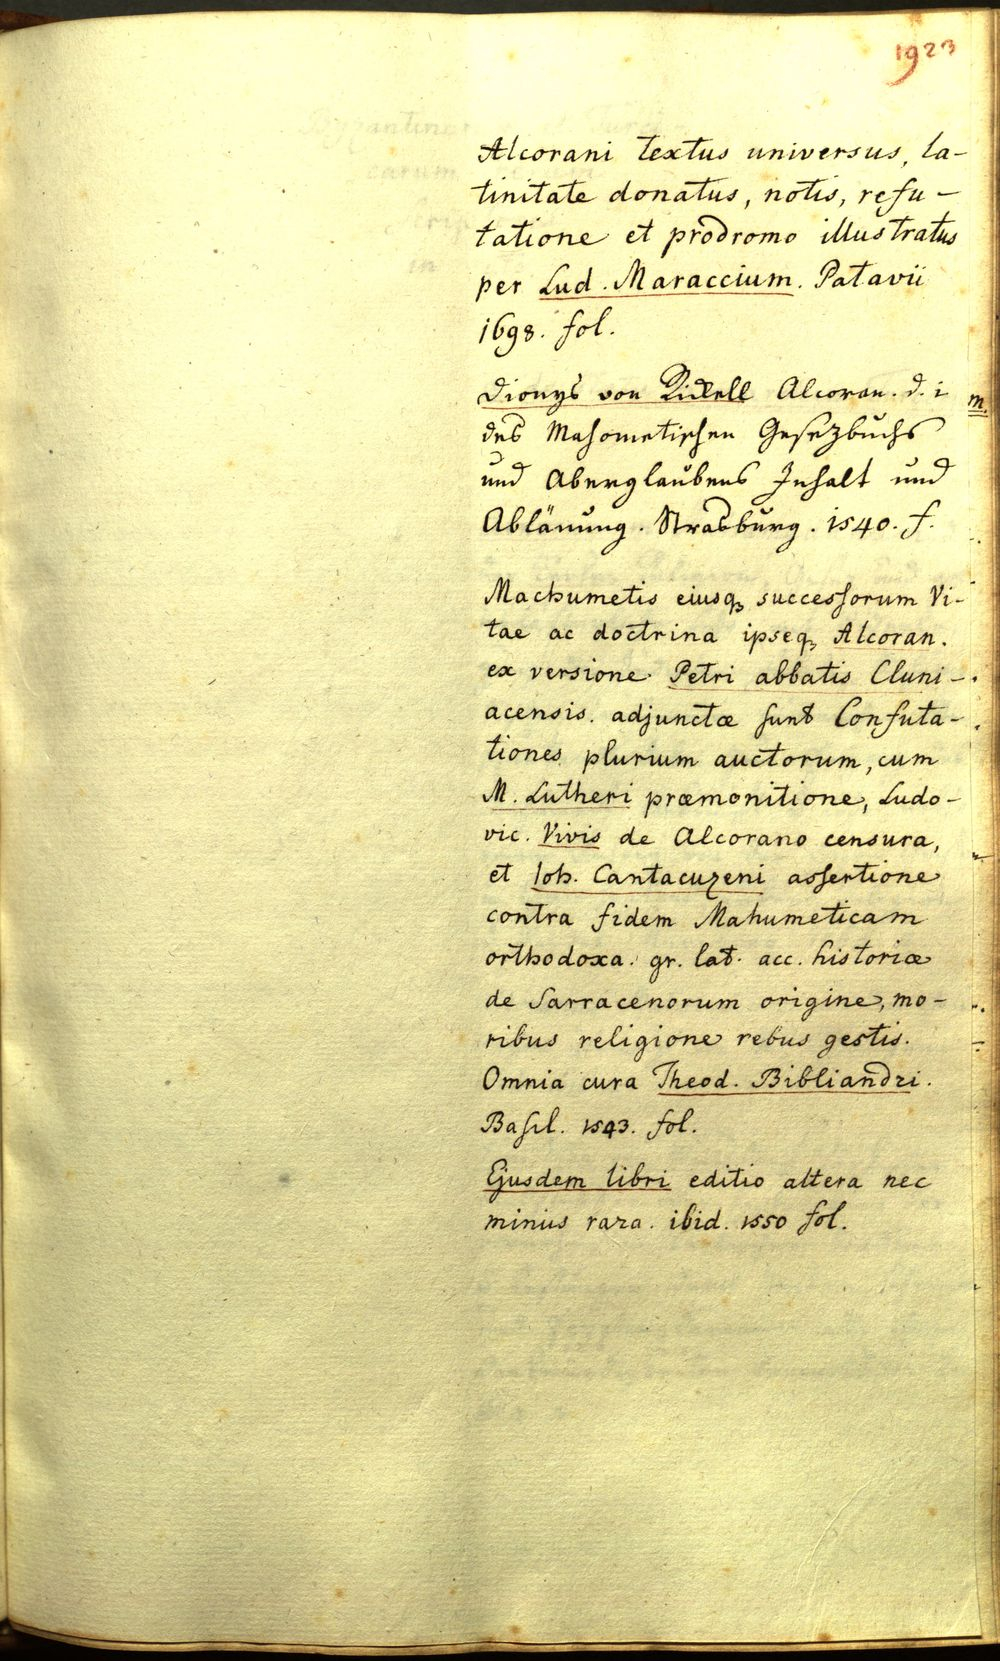 1923
Alcorani textus universus, la-
tinitate donatus, notis, refu-
tatione et prodromo illustratus
per Lud. Maraccium. Patavii
1698. fol.
Dionys von Rickell Alcoran. d. i
des Mahometischen Gesezbuchs
und Aberglaubens Inhalt und
Ablänung. Strasburg. 1540. f.
m.
Machumetis eiusq3 successorum Vi-
tae ac doctrina ipseq3 Alcoran.
ex versione Petri abbatis Cluni-
acensis. adjunctæ sunt Confuta-
tiones plurium auctorum, cum
M. Lutheri præmonitione, Ludo-
vic. Vivis de Alcorano censura,
et Ioh. Cantacuzeni assertione
contra fidem Mahumeticam
orthodoxa. gr. lat. acc. historiæ
de Sarracenorum origine, mo-
ribus religione rebus gestis.
Omnia cura Theod. Bibliandri.
Basil. 1543. fol.
Ejusdem libri editio altera nec
minus rara. ibid. 1550 fol.